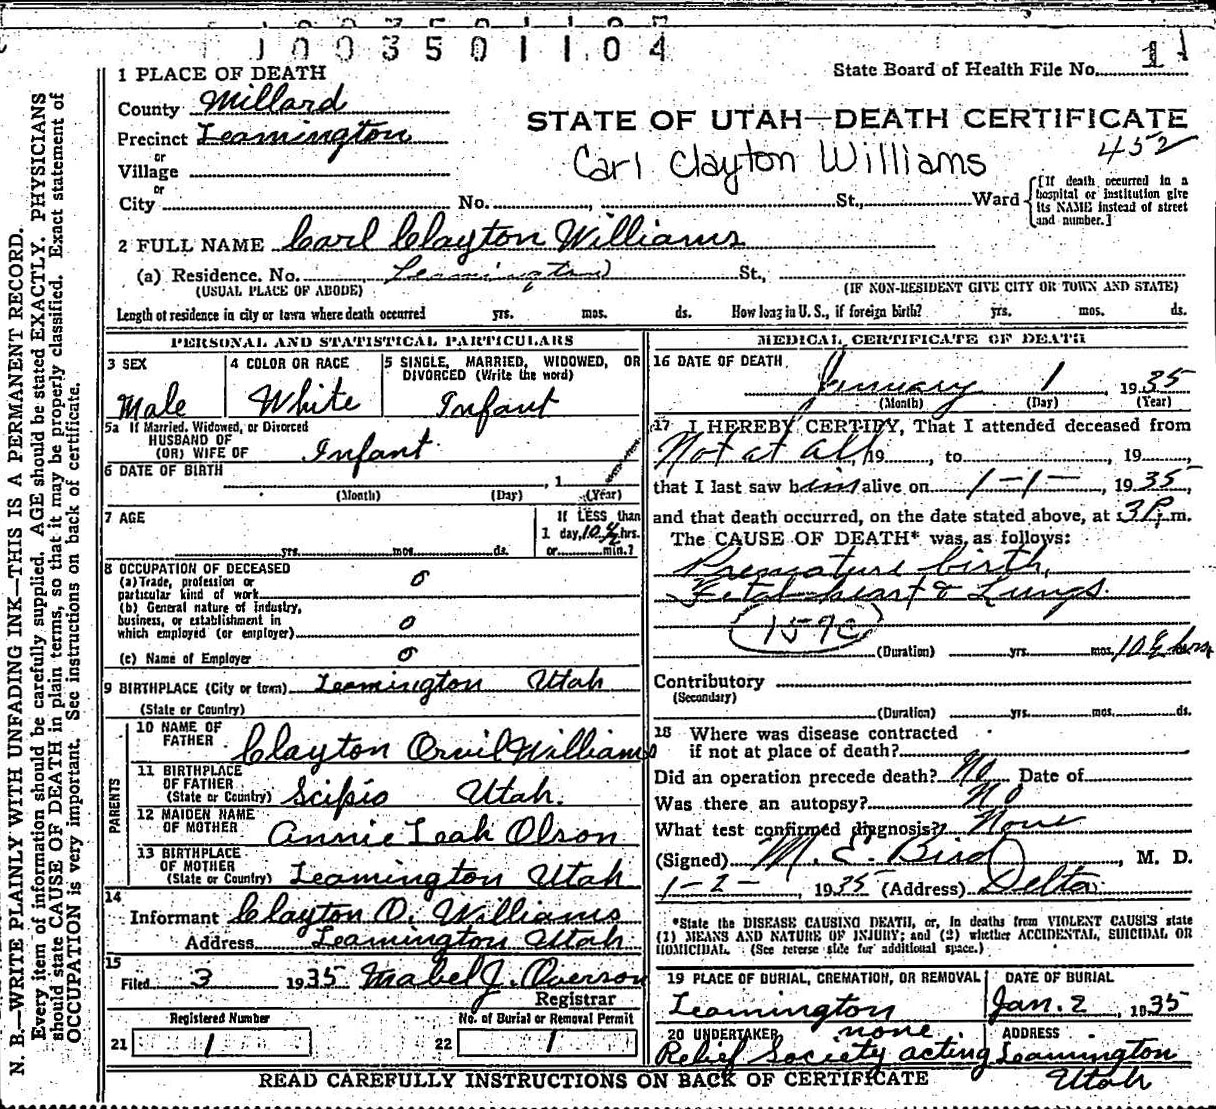 1003501104
1 PLACE OF DEATH
State Board of Health File No. 1
County Millard
STATE OF UTAH—DEATH CERTIFICATE
Precinct Leamington
452
or
Carl Clayton Williams
Village
or
City No. , St., Ward
[If death occurred in a
hospital or institution give
its NAME instead of street
and number.]
2 FULL NAME Carl Clayton Williams
(a) Residence. No. Leamington St.,
(USUAL PLACE OF ABODE) (IF NON-RESIDENT GIVE CITY OR TOWN AND STATE)
Length of residence in city or town where death occurred yrs. mos. ds. How long in U. S., if foreign birth? yrs. mos. ds.
PERSONAL AND STATISTICAL PARTICULARS
3 SEX
Male
4 COLOR OR RACE
White
5 SINGLE, MARRIED, WIDOWED, OR
DIVORCED (Write the word)
Infant
5a If Married, Widowed, or Divorced
HUSBAND OF
(OR) WIFE OF Infant
6 DATE OF BIRTH , 1
(Month) (Day) (Year)
7 AGE
yrs. mos. ds.
If LESS than
1 day, 10 ½ hrs.
or min.?
8 OCCUPATION OF DECEASED
(a) Trade, profession or
particular kind of work o
(b) General nature of Industry,
business, or establishment in
which employed (or employer) o
(c) Name of Employer o
9 BIRTHPLACE (City or town) Leamington Utah
(State or Country)
PARENTS
10 NAME OF
FATHER Clayton Orvil Williams
11 BIRTHPLACE
OF FATHER
(State or Country) Scipio Utah.
12 MAIDEN NAME
OF MOTHER Annie Leah Olson
13 BIRTHPLACE
OF MOTHER
(State or Country) Leamington Utah
14
Informant Clayton O. Williams
Address Leamington Utah
15
Filed 3 1935 Mabel J. Overson
Registrar
Registered Number No. of Burial or Removal Permit
21 1 22 1
MEDICAL CERTIFICATE OF DEATH
16 DATE OF DEATH
January 1 1935
(Month) (Day) (Year)
17 I HEREBY CERTIFY, That I attended deceased from
Not at all, 19 , to , 19 ,
that I last saw him alive on 1-1- , 1935,
and that death occurred, on the date stated above, at 3P. m.
The CAUSE OF DEATH* was as follows:
Premature birth,
Fetal heart & Lungs.
159c
(Duration) yrs. mos. 10 ½ hrs.
Contributory
(Secondary)
(Duration) yrs. mos. ds.
18 Where was disease contracted
if not at place of death?
Did an operation precede death? No Date of
Was there an autopsy? No
What test confirmed diagnosis? None
(Signed) M. E. Bird , M. D.
1-2- , 1935 (Address) Delta
*State the DISEASE CAUSING DEATH, or, in deaths from VIOLENT CAUSES state
(1) MEANS AND NATURE OF INJURY; and (2) whether ACCIDENTAL, SUICIDAL OR
HOMICIDAL. (See reverse side for additional space.)
19 PLACE OF BURIAL, CREMATION, OR REMOVAL
Leamington
DATE OF BURIAL
Jan. 2 , 1935
20 UNDERTAKER none
Relief Society acting
ADDRESS
Leamington
Utah
READ CAREFULLY INSTRUCTIONS ON BACK OF CERTIFICATE
N. B.—WRITE PLAINLY WITH UNFADING INK—THIS IS A PERMANENT RECORD.
Every item of information should be carefully supplied. AGE should be stated EXACTLY. PHYSICIANS
should state CAUSE OF DEATH in plain terms, so that it may be properly classified. Exact statement of
OCCUPATION is very important. See instructions on back of certificate.